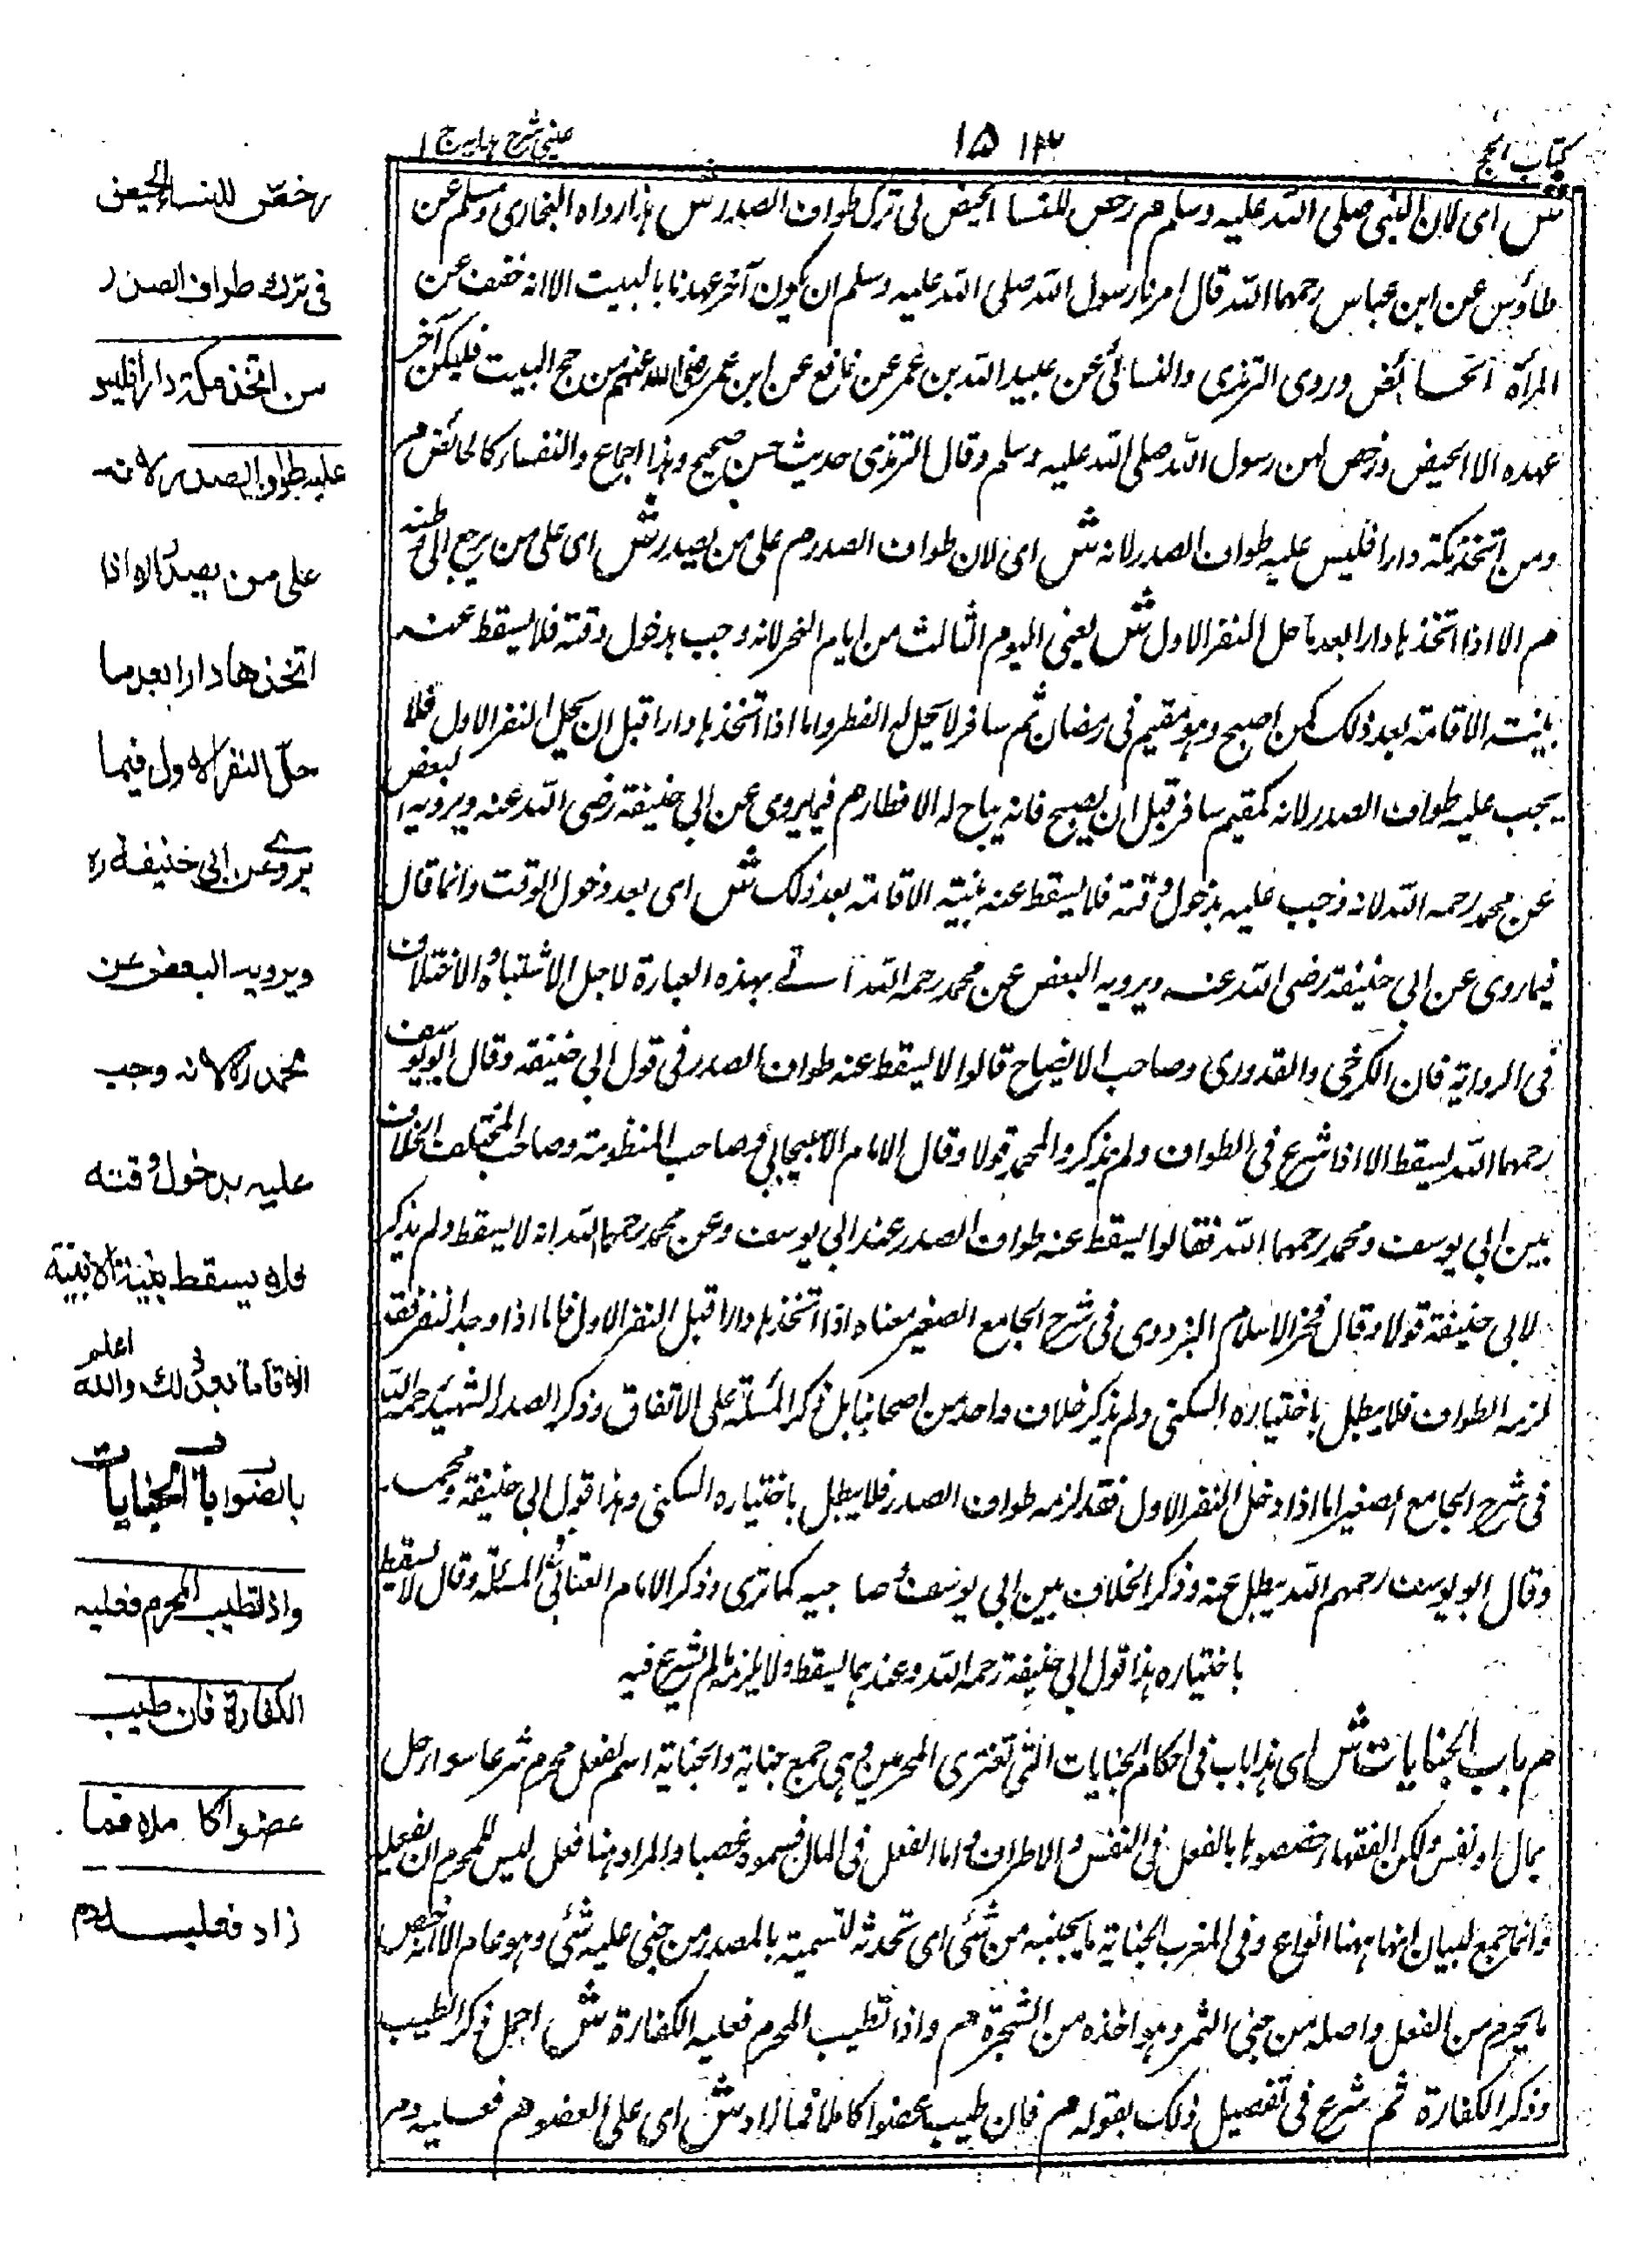 كتاب الحج
١٥١٣
عينى شرح هدايه ج ١
ش اى لان النبى صلى الله عليه وسلم م رخص للنساء الحيض فى ترك طواف الصدر ش هذا رواه البخارى ومسلم عن
طاؤس عن ابن عباس رحمهما الله قال امرنا رسول الله صلى الله عليه وسلم ان يكون آخر عهدنا بالبيت الا انه خفف عن
المرأة الحائض وروى الترمذى والنسائى عن عبيد الله بن عمر عن نافع عن ابن عمر رضى الله عنهم من حج البيت فليكن آخر
عهده الا الحيض ورخص لهن رسول الله صلى الله عليه وسلم وقال الترمذى حديث حسن صحيح وهذا اجماع والنفساء كالحائض م
ومن اتخذ مكة دارا فليس عليه طواف الصدر لانه ش اى لان طواف الصدر م على من يصدر ش اى على من يرجع الى وطنه
م الا اذا اتخذها دارا بعد ما حل النفر الاول ش يعنى اليوم الثالث من ايام النحر لانه وجب بدخول وقته فلا يسقط عنه
بنيته الاقامة بعد ذلك كمن اصبح وهو مقيم فى رمضان ثم سافر لا يحل له الفطر واما اذا اتخذها دارا قبل ان يحل النفر الاول فلا
يجب عليه طواف الصدر لانه كمقيم سافر قبل ان يصبح فانه يباح له الافطار م فيما يروى عن ابى حنيفة رضى الله عنه ويرويه البعض
عن محمد رحمه الله لانه وجب عليه بدخول وقته فلا يسقط عنه بنية الاقامة بعد ذلك ش اى بعد دخول الوقت وانما قال
فيما روى عن ابى حنيفة رضى الله عنه ويرويه البعض عن محمد رحمه الله اتى بهذه العبارة لاجل الاشتباه والاختلاف
فى الرواية فان الكرخى والقدورى وصاحب الايضاح قالوا لا يسقط عنه طواف الصدر فى قول ابى حنيفة وقال ابو يوسف
رحمهما الله يسقط الا اذا شرع فى الطواف ولم يذكروا لمحمد قولا وقال الامام الاسبيجابى وصاحب المنظومة وصاحب المختلف الخلاف
بين ابى يوسف ومحمد رحمهما الله فقالوا يسقط عنه طواف الصدر عند ابى يوسف وعن محمد رحمهما الله انه لا يسقط ولم يذكر
لابى حنيفة قولا وقال فخر الاسلام البزدوى فى شرح الجامع الصغير معناه اذا اتخذها دارا قبل النفر الاول فاما اذا وجد النفر فقد
لزمه الطواف فلا يبطل باختياره السكنى ولم يذكر خلاف واحد من اصحابنا بل ذكر المسئلة على الاتفاق وذكر الصدر الشهيد رحمه الله
فى شرح الجامع الصغير اما اذا دخل النفر الاول فقد لزمه طواف الصدر فلا يبطل باختياره السكنى وهذا قول ابى حنيفة ومحمد
وقال ابو يوسف رحمهم الله يبطل عنه وذكر الخلاف بين ابى يوسف وصاحبيه كما ترى وذكر الامام العتابى المسئلة وقال لا يسقط
باختياره هذا قول ابى حنيفة رحمه الله وعندهما يسقط ولا يلزمه ما لم يشرع فيه
م باب الجنايات ش اى هذا باب فى احكام الجنايات التى تعترى المحرمين وهى جمع جناية والجناية اسم لفعل محرم شرعا سواء حل
بمال او نفس ولكن الفقهاء خصصوها بالفعل فى النفس والاطراف واما الفعل فى المال فسموه غصبا والمراد هنا فعل ليس للمحرم ان يفعله
وانما جمع لبيان انها ههنا انواع وفى المغرب الجناية ما يجنيه من شئ اى تحدثه تسمية بالمصدر من جنى عليه شئ وهو عام الا انه خص
ما يحرم من الفعل واصله من جنى الثمر وهو اخذه من الشجرة م واذا تطيب المحرم فعليه الكفارة ش اجمل ذكر الطيب
وذكر الكفارة ثم شرع فى تفصيل ذلك بقوله م فان طيب عضوا كاملا فما زاد ش اى على العضو م فعليه دم
رخص للنساء الحيض
فى ترك طواف الصدر
من اتخذ مكة دارا فليس
عليه طواف الصدر لانه
على من يصدر الا اذا
اتخذها دارا بعد ما
حل النفر الاول فيما
يروى عن ابى حنيفة ره
ويرويه البعض عن
محمد ره لانه وجب
عليه بدخول وقته
فلا يسقط بنية
الاقامة بعد ذلك والله اعلم
باب الجنايات
واذا تطيب المحرم فعليه
الكفارة فان طيب
عضوا كاملا فما
زاد فعليه دم